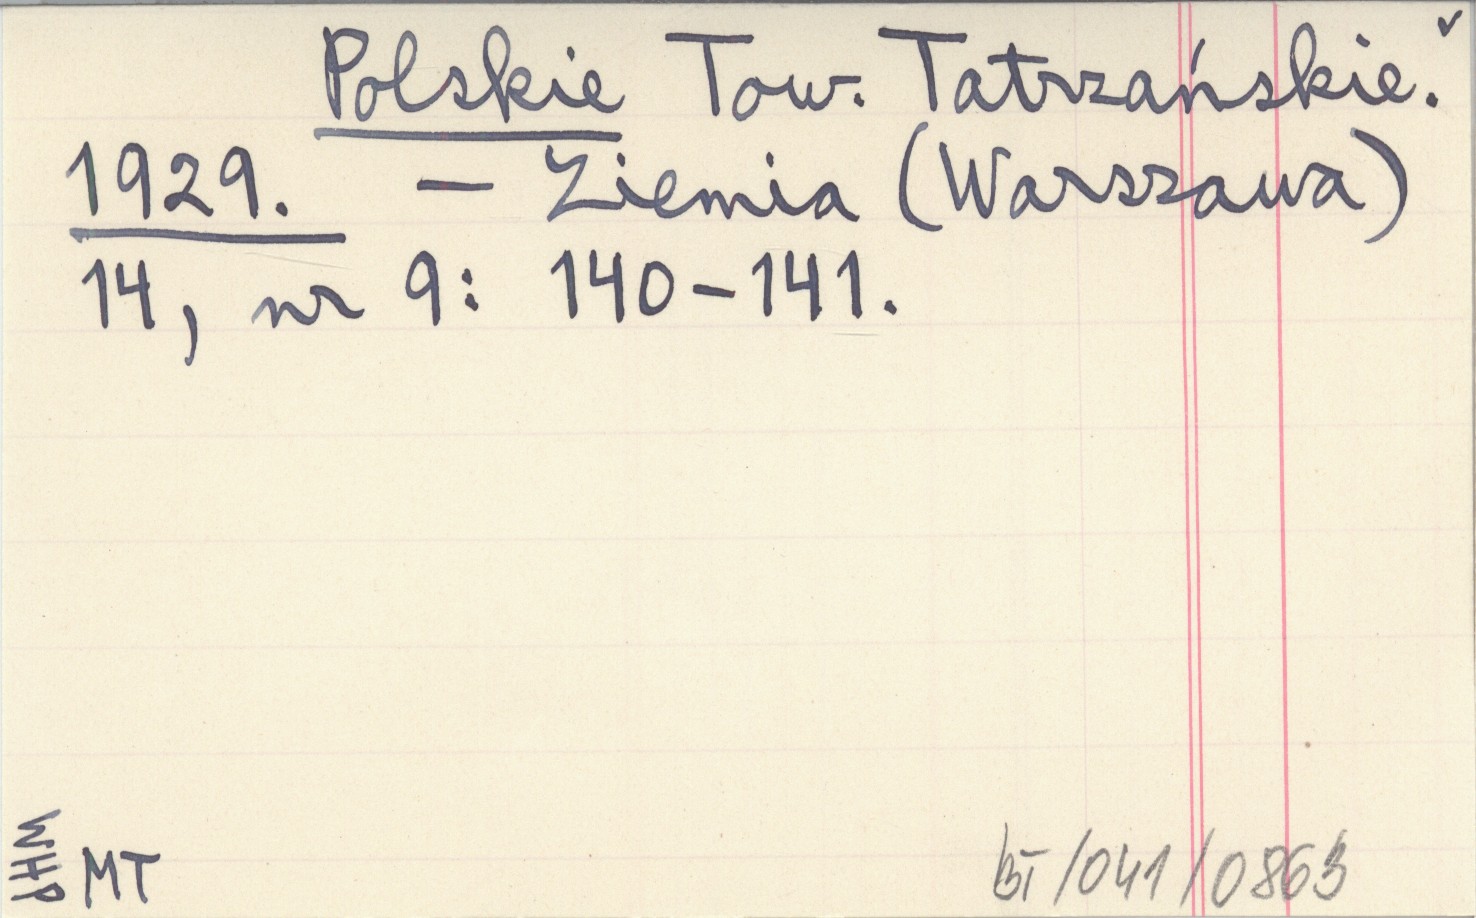 Polskie Tow. Tatrzańskie.
1929. — Ziemia (Warszawa)
14, nr 9: 140-141.
WHP
MT
BT/041/0863